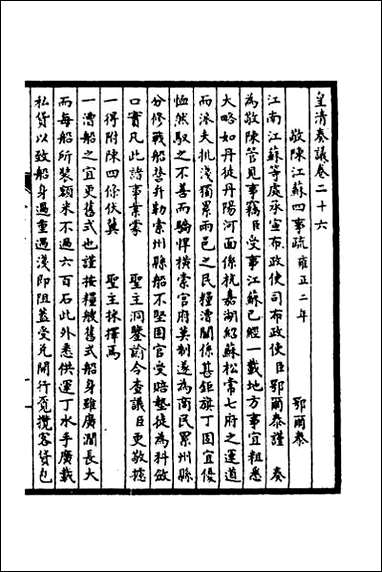 皇清奏議卷二十六
敬陳江蘇四事疏 雍正二年 鄂爾泰
江南江蘇等處承宣布政使司布政使臣鄂爾泰謹 奏
為敬陳管見事竊臣受事江蘇已經一載地方事宜粗悉
大略如丹徒丹陽河面係杭嘉湖紹蘇松常七府之運道
而派夫挑淺獨累兩邑之民糧漕關係甚鉅旗丁固宜優
恤然馭之不善而驕悍橫索官府莫制遂為商民累州縣
分修戰船嵆升勒索州縣船不堅固官受賠墊徒為科斂
口實凡此諸事業蒙 聖主洞鑒諭令查議臣更敬據
一得附陳四條伏冀 聖主採擇焉
一漕船之宜更舊式也謹按糧艘舊式船身雖廣濶長大
而每船所裝額米不過六百石此外悉供運丁水手廣載
私貨以致船身過重遇淺即阻蓋受兌開行覓攬客貨包